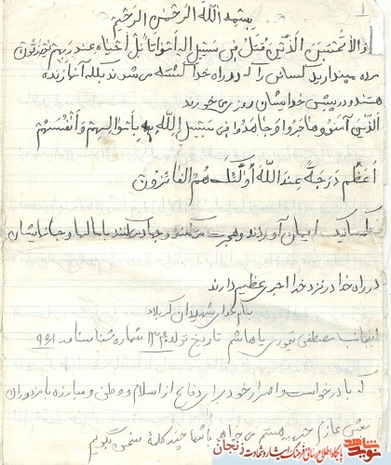 بسم الله الرحمن الرحیم
ولا تحسبن الذین قتلو فی سبیل الله امواتا بل احیاء عند ربهم یرزقون
مرده مپندارید کسانی را که در راه خدا کشته می شوند بلکه آنها زنده
هستند و در پیش خدایشان روزی می خورند
الذین آمنو و هاجروا و جاهدوا فی سبیل الله باموالهم و انفسهم
اعظم درجة عند الله اولئک هم الفائزون
کسانیکه ایمان آوردند و هجرت می کنند و جهاد می کنند با مالها و جانهایشان
در راه خدا در نزد خدا اجری عظیم دارند
بنام خدای شهیدان کربلا
اینجانب مصطفی تاریخ تولد شماره شناسنامه ۹۶۱
که با درخواست و اصرار خود برای دفاع از اسلام و وطن و مبارزه با مزدوران
عازم جبهه هستم می خواهم با شما چند کلمه سخن بگویم
نوید شاهد
پایگاه اطلاع رسانی فرهنگ ایثار و شهادت زنجان